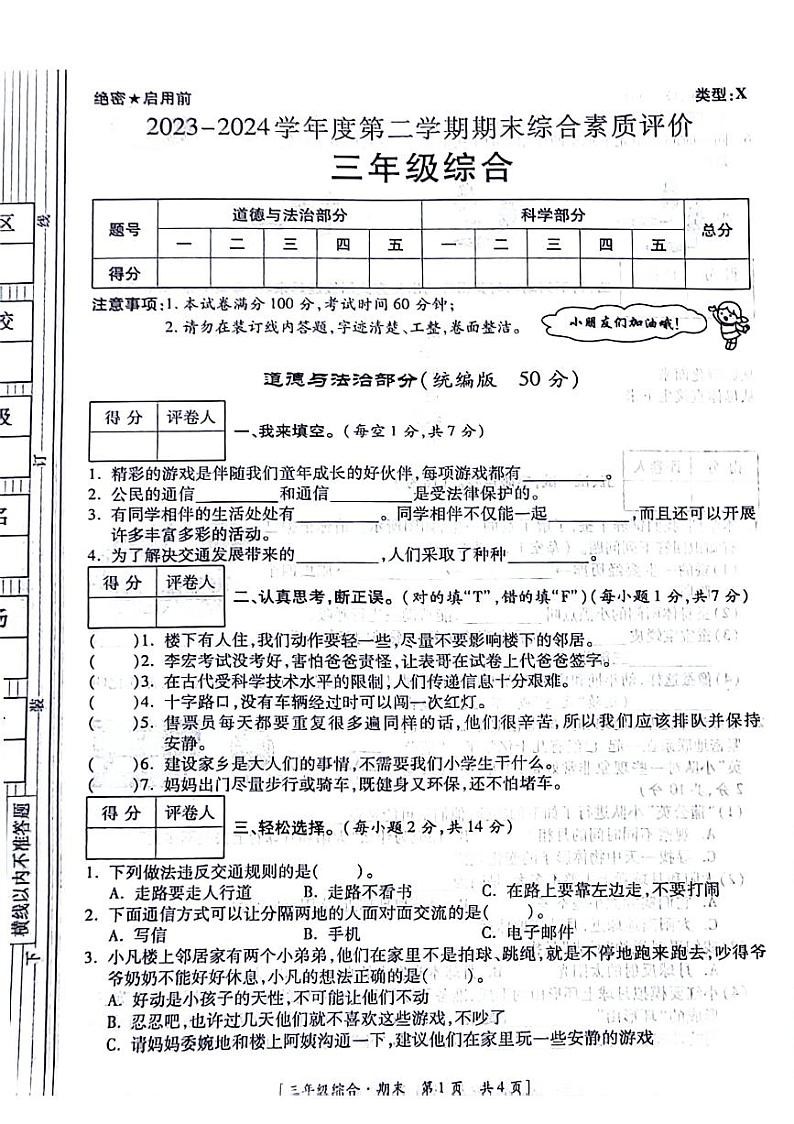 绝密★启用前
类型:X
2023-2024学年度第二学期期末综合素质评价
三年级综合
题号 道德与法治部分 科学部分 总分
一 二 三 四 五 一 二 三 四 五
得分
注意事项:1.本试卷满分100分,考试时间60分钟;
2.请勿在装订线内答题,字迹清楚、工整,卷面整洁。
小朋友们加油哦!
道德与法治部分(统编版 50分)
得分 评卷人
一、我来填空。(每空1分,共7分)
1. 精彩的游戏是伴随我们童年成长的好伙伴,每项游戏都有________。
2. 公民的通信________和通信________是受法律保护的。
3. 有同学相伴的生活处处有________。同学相伴不仅能一起________,而且还可以开展
许多丰富多彩的活动。
4. 为了解决交通发展带来的________,人们采取了种种________。
得分 评卷人
二、认真思考,断正误。(对的填“T”,错的填“F”)(每小题1分,共7分)
( )1. 楼下有人住,我们动作要轻一些,尽量不要影响楼下的邻居。
( )2. 李宏考试没考好,害怕爸爸责怪,让表哥在试卷上代爸爸签字。
( )3. 在古代受科学技术水平的限制,人们传递信息十分艰难。
( )4. 十字路口,没有车辆经过时可以闯一次红灯。
( )5. 售票员每天都要重复很多遍同样的话,他们很辛苦,所以我们应该排队并保持
安静。
( )6. 建设家乡是大人们的事情,不需要我们小学生干什么。
( )7. 妈妈出门尽量步行或骑车,既健身又环保,还不怕堵车。
得分 评卷人
三、轻松选择。(每小题2分,共14分)
1. 下列做法违反交通规则的是( )。
A. 走路要走人行道 B. 走路不看书 C. 在路上要靠左边走,不要打闹
2. 下面通信方式可以让分隔两地的人面对面交流的是( )。
A. 写信 B. 手机 C. 电子邮件
3. 小凡楼上邻居家有两个小弟弟,他们在家里不是拍球、跳绳,就是不停地跑来跑去,吵得爷
爷奶奶不能好好休息,小凡的想法正确的是( )。
A. 好动是小孩子的天性,不可能让他们不动
B. 忍忍吧,也许过几天他们就不喜欢这些游戏,不吵了
C. 请妈妈委婉地和楼上阿姨沟通一下,建议他们在家里玩一些安静的游戏
[三年级综合·期末 第1页 共4页]
区
校
级
名
线
订
装
横线以内不准答题
下